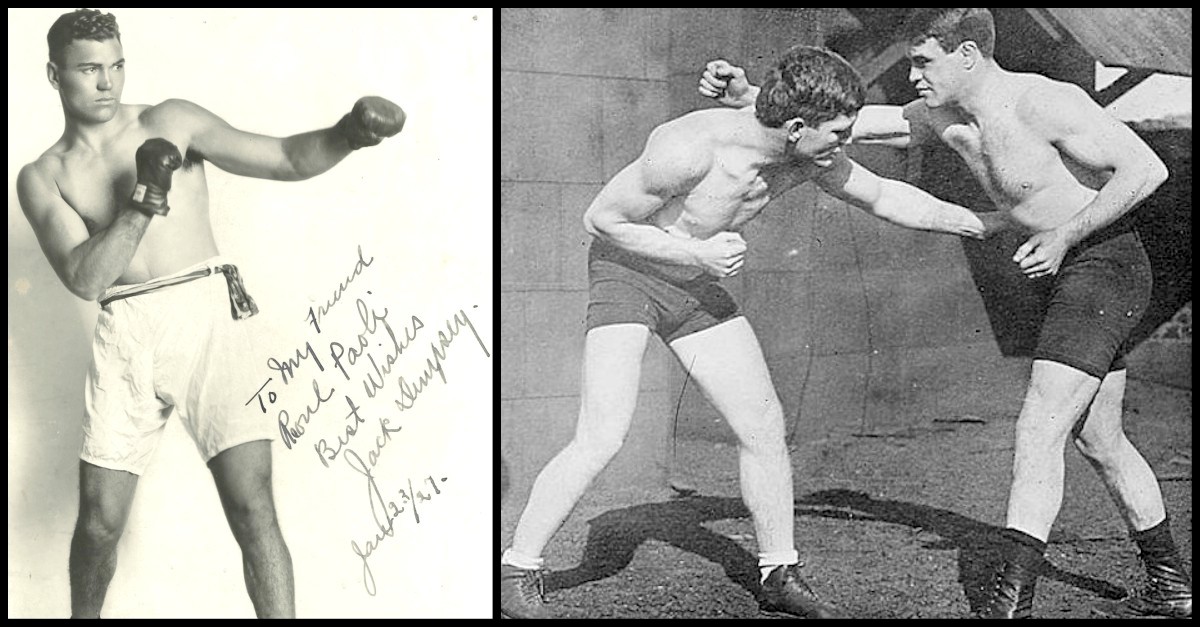 To My Friend
Raoul Paoli
Best Wishes
Jack Dempsey.
Jan 23/27.